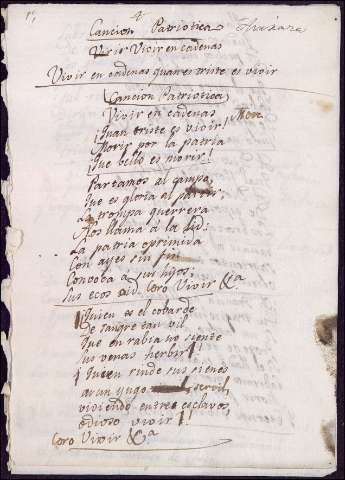 Cancion Patriotica
Vivir Vivir en cadenas
Vivir en cadenas quan triste es vivir
Cancion Patriotica
Vivir en cadenas
¡Quan triste es vivir!
Morir por la patria
¡Que bello es morir!
Partamos al campo,
Que es gloria el partir,
La trompa guerrera
Nos llama á la lid:
La patria oprimida
Con ayes sin fin
Convoca a sus hijos,
Sus ecos oid. Coro Vivir &a
¡Quien es el cobarde
De sangre tan vil
Que en rabia no siente
Sus venas herbir!
¡Quien rinde sus sienes
a un yugo servil,
viviendo entre esclavos,
odioso vivir!!
Coro Vivir &a